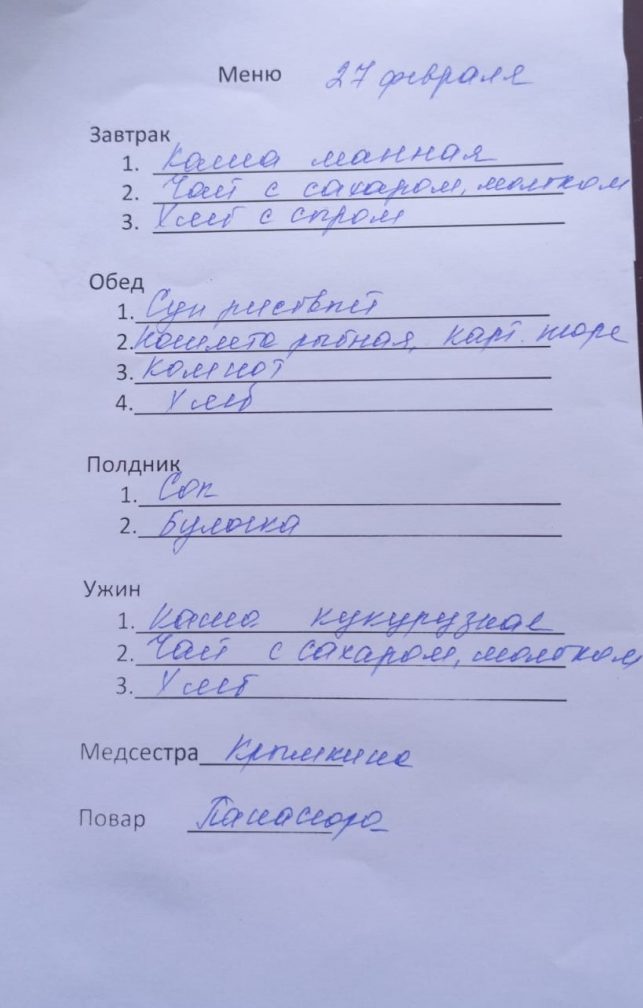 Меню 27 февраля
Завтрак
1. Каша манная
2. Чай с сахаром, молоком
3. Хлеб с сыром
Обед
1. Суп рисовый
2. Котлета рыбная, карт. пюре
3. Компот
4. Хлеб
Полдник
1. Сок
2. Булочка
Ужин
1. Каша кукурузная
2. Чай с сахаром, молоком
3. Хлеб
Медсестра Крымкина
Повар